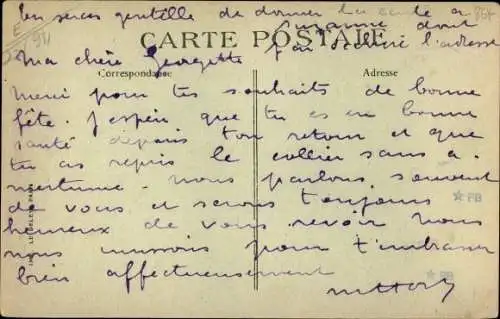 tu seras gentille de donner la carte a
Suzanne dont
CARTE POSTALE
j'ai oublié l'adresse
Ma chère Georgette
Correspondance
Adresse
Merci pour tes souhaits de bonne
fête. J'espère que tu es en bonne
santé depuis ton retour et que
tu as repris le collier sans a-
mertume. Nous parlons souvent
de vous et serons toujours
heureux de vous revoir. Nous
nous unissons pour t'embrasser
bien affectueusement
PB
PB